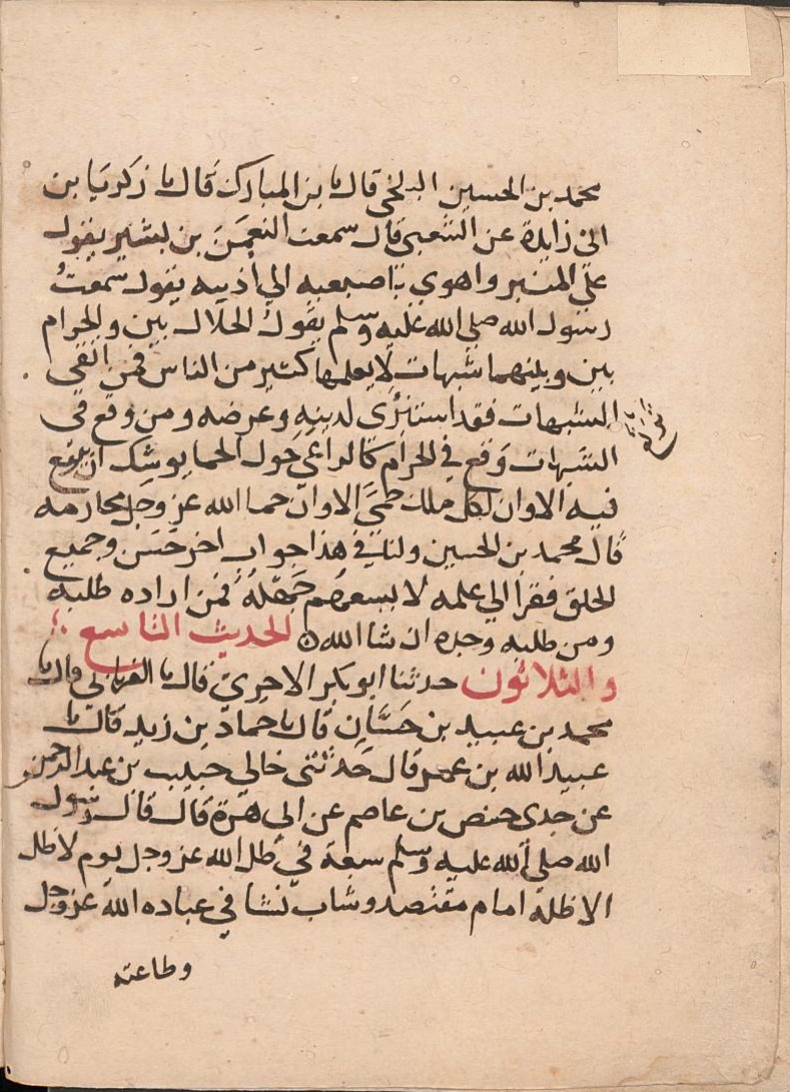 محمد بن الحسين البلخي قال نا بن المبارك قال نا زكريا بن
ابي زايدة عن الشعبي قال سمعت النعمن بن بشير يقول
علي المنبر واهوي باصبعيه الي اذنيه يقول سمعت
رسول الله صلي الله عليه وسلم يقول الحلال بين والحرام
بين وبينهما شبهات لا يعلمها كثير من الناس فمن اتقي
الشبهات فقد استبرى لدينه وعرضه ومن وقع في
الشبهات وقع في الحرام كالراعي حول الحما يوشك ان يقع
فيه الاوان لكل ملك حمي الاوان حما الله عز وجل محارمه
قال محمد بن الحسين ولنا في هذا جواب اخر حسن وجميع
الخلق فقرا الي علمه لا يسعهم جهله فمن اراده طلبه
ومن طلبه وجده ان شا الله الحديث التاسع
والثلاثون حدثنا ابو بكر الاجري قال نا الفريابي قال نا
محمد بن عبيد بن حسان قال نا حماد بن زيد قال نا
عبيد الله بن عمر قال حدثني خالي حبيب بن عبد الرحمن
عن جدى حفص بن عاصم عن ابي هرة قال قال رسول
الله صلي الله عليه وسلم سبعة في ظل الله عز وجل يوم لا ظل
الا ظله امام مقتصد وشاب نشا في عباده الله عز وجل
وطاعته